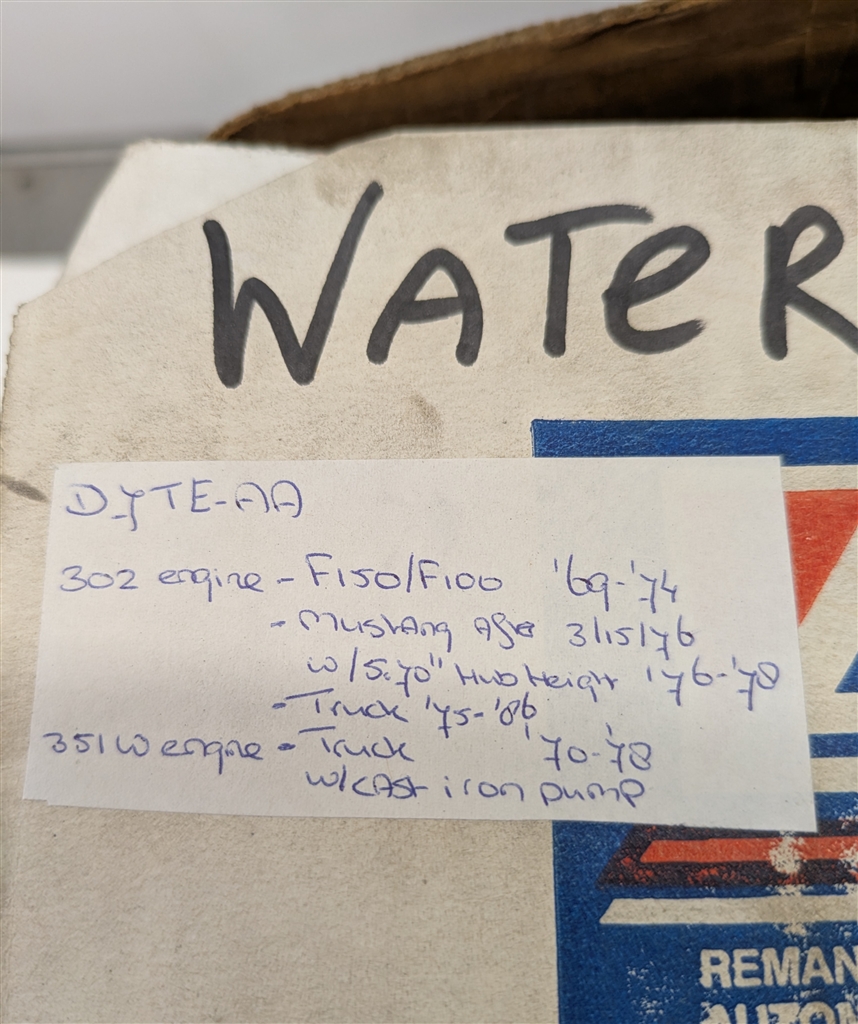 WATER
D7TE-AA
302 engine - F150/F100 '69-'74
- Mustang After 3/15/76
w/5.70" Hub Height '76-'78
- Truck '75-'86
351W engine - Truck '70-'78
w/cast iron pump
REMAN
AUTOM